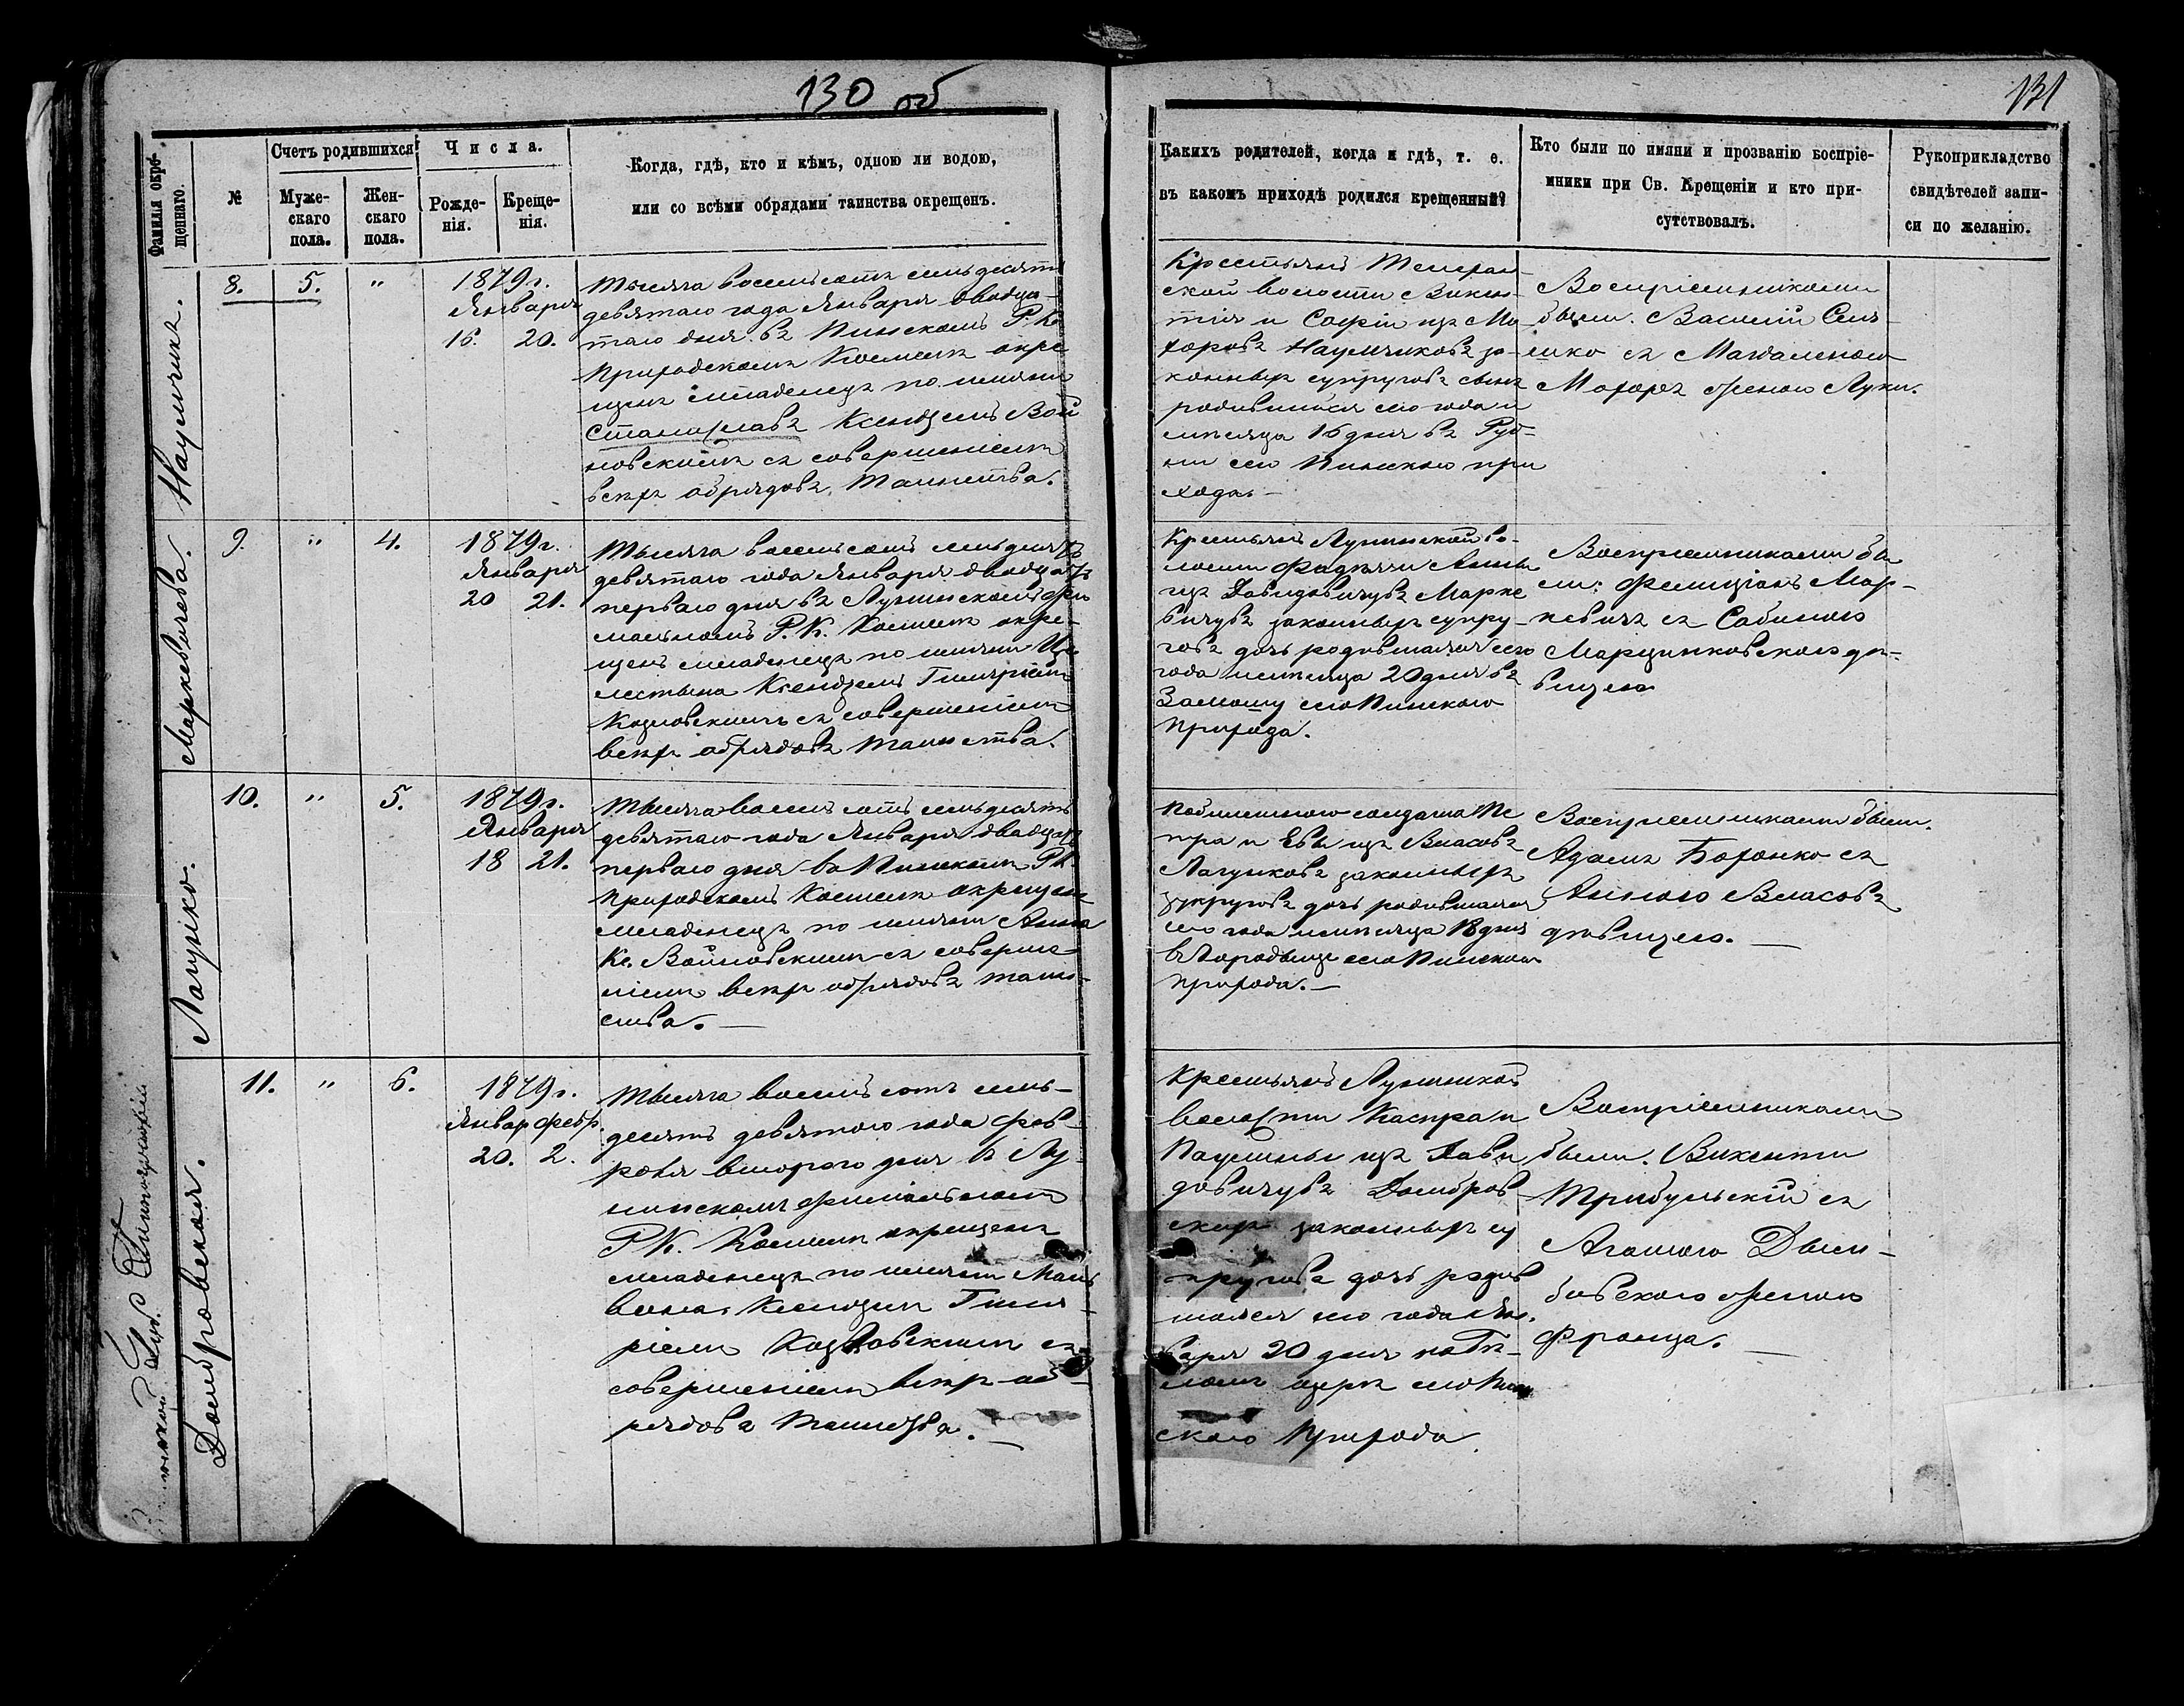 130 об
131
Фамилія окре-
щеннаго.
№
Счетъ родившихся
Муже-
скаго
пола.
Жен-
скаго
пола.
Числа.
Рожде-
нія.
Креще-
нія.
Когда, гдѣ, кто и кѣмъ, одною ли водою,
или со всѣми обрядами таинства окрещенъ.
Какихъ родителей, когда и гдѣ, т. е.
въ какомъ приходѣ родился крещенный?
Кто были по имяни и прозванію воспріе-
мники при Св. Крещеніи и кто при-
сутствовалъ.
Рукоприкладство
свидѣтелей запи-
си по желанію.
Наумчикъ.
8. 5. "
1879 г.
Января
16. 20.
Тысяча восемьсотъ семьдесятъ
девятаго года Января двадца-
таго дня въ Пинскомъ Р. К.
приходскомъ Костелѣ окре
щенъ младенецъ по имяни
Станиславъ Ксендземъ Вой
новскимъ съ совершеніемъ
всѣхъ обрядовъ Таинства.
Крестьянъ
ской волости Викен-
тія и Софіи изъ Мо
хоровъ Наумчиковъ за-
конныхъ супруговъ сынъ
родившійся сего года и
мѣсяца 16 дня въ
сего Пинскаго при
хода.-
Воспріемниками
были. Василій
съ Магдаленою
Мохоръ женою Луки.
Маркевичева.
9. " 4.
1879 г.
Января
20 21.
Тысяча восемьсотъ семьдесятъ
девятаго года Января двадцать
перваго дня въ Лунинскомъ фи
ліальномъ Р. К. Костелѣ окре-
щенъ младенецъ по имяни Це
лестына Ксендземъ Гиляріемъ
Козловскимъ съ совершеніемъ
всѣхъ обрядовъ таинства.
Крестьянъ Лунинской во-
лости Анны
изъ Давидовичувъ Марке
вичувъ законныхъ супру-
говъ дочь родившаяся сего
года и мѣсяца 20 дня въ
Замошу сего Пинскаго
прихода.
Воспріемниками бы
ли: Фелиціанъ Мар-
кевичъ съ Сабиною
Марцинковскою дѣ-
вицею
Лагунко.
10. " 5.
1879 г.
Января
18 21.
Тысяча восемь сотъ семьдесятъ
девятаго года Января двадцать
перваго дня въ Пинскомъ Р. К.
приходскомъ Костелѣ окрещенъ
младенецъ по имяни Анна
Кс. Войновскимъ съ соверше-
ніемъ всѣхъ обрядовъ таин-
ства.-
солдата Пе
тра и Евы изъ Власовъ
Лагунковъ законныхъ
супруговъ дочь родившаяся
сего года и мѣсяца 18 дня
въ Городыще сего Пинскаго
прихода.-
Воспріемниками были.
Адамъ Боронко съ
Анною Власовъ
дѣвицею.-
Домбровская.
11. " 6.
1879 г.
Январ Февр.
20. 2.
Тысяча восемь сотъ семь-
десятъ девятаго года Фев-
раля второго дня въ Лу-
нинскомъ филіальномъ
Р. К. Костелѣ окрещенъ
младенецъ по имяни Маль
вина, Ксендземъ Гиля-
ріемъ Козловскимъ съ
совершеніемъ всѣхъ об-
рядовъ Таинства.-
Крестьянъ Лунинской
волости Каспра и
Паулины изъ Дави
довичувъ Домбров-
скихъ законныхъ су
пруговъ дочь родив
шаяся сего года Ян-
варя 20 дня
озерѣ сего Пин
скаго Прихода.
Воспріемниками
были. Викенти
Трибульскій съ
Агатою Дым-
бовскою женою
Франца.-